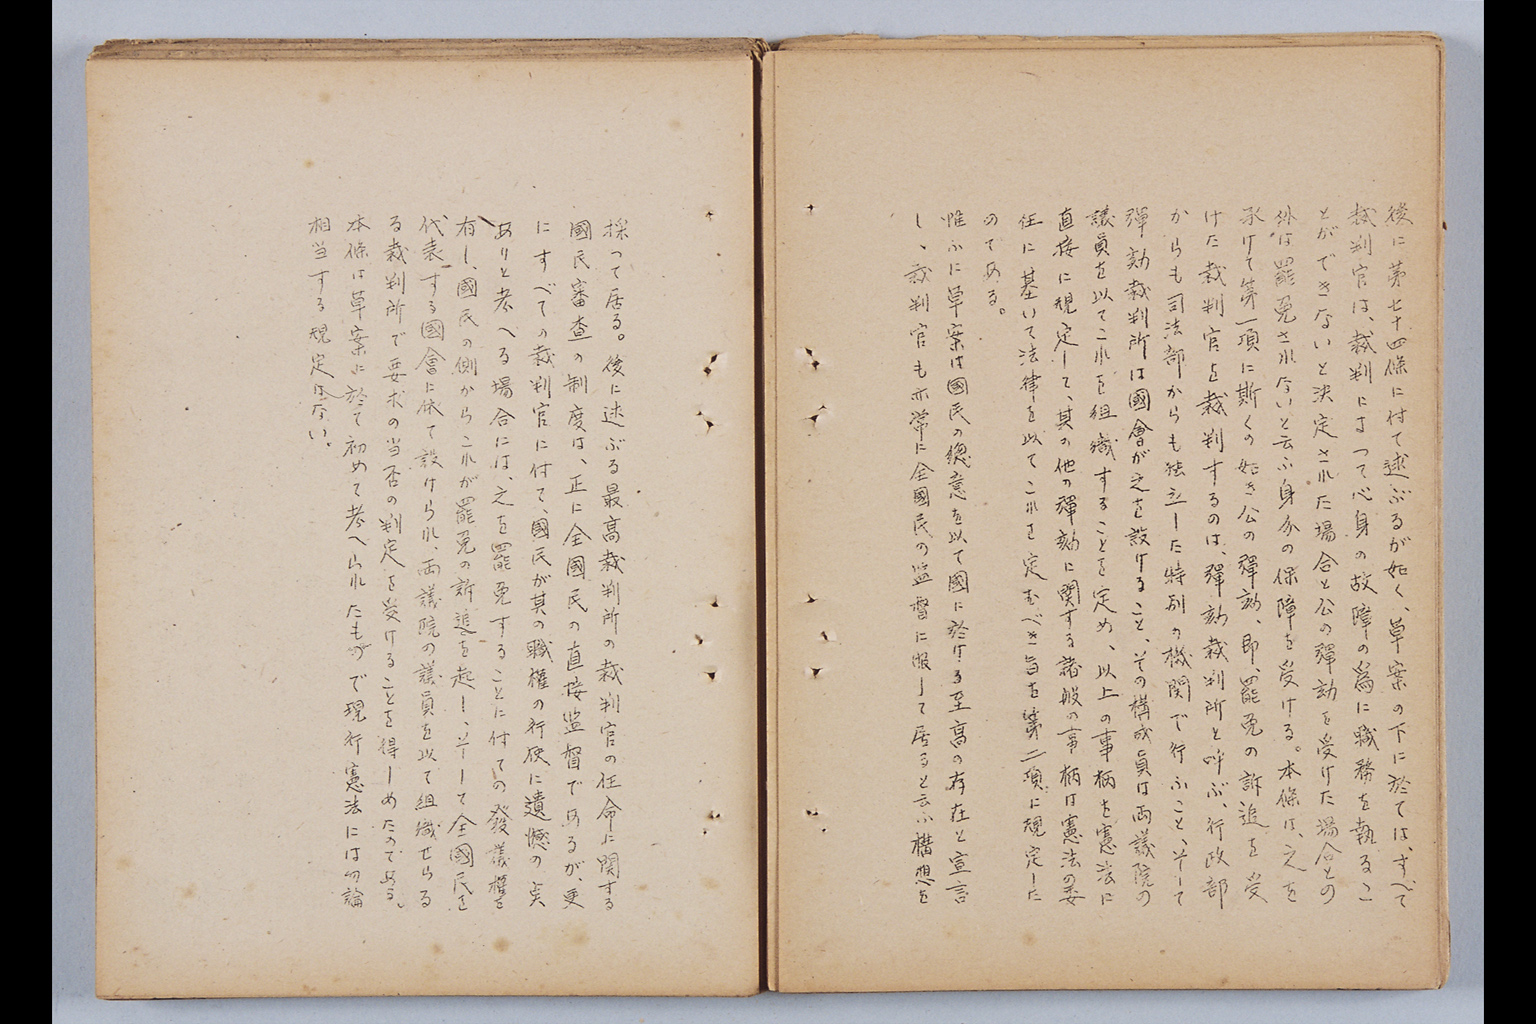 後に第七十四條に付て述ぶるが如く、草案の下に於ては、すべて
裁判官は、裁判によつて心身の故障の爲に職務を執るこ
とができないと決定された場合と公の彈劾を受けた場合との
外は罷免されないと云ふ身分の保障を受ける。本條は、之を
承けて第一項に斯くの如き公の彈劾、即、罷免の訴追を受
けた裁判官を裁判するのは、彈劾裁判所と呼ぶ、行政部
からも司法部からも独立した特別の機関で行ふこと、そして
彈劾裁判所は國會が之を設けること、その構成員は両議院の
議員を以てこれを組織することを定め、以上の事柄を憲法に
直接に規定して、其の他の彈劾に関する諸般の事柄は憲法の委
任に基いて法律を以てこれを定むべき旨を第二項に規定した
のである。
惟ふに草案は國民の總意を以て國に於ける至高の存在と宣言
し、裁判官も亦常に全國民の監督に服して居ると云ふ構想を
採つて居る。後に述ぶる最高裁判所の裁判官の任命に関する
國民審査の制度は、正に全國民の直接監督であるが、更
にすべての裁判官に付て、國民が其の職權の行使に遺憾の点
ありと考へる場合には、之を罷免することに付ての發議權を
有し、國民の側からこれが罷免の訴追を起し、そして全國民を
代表する國會に依て設けられ、両議院の議員を以て組織せらる
る裁判所で要求の当否の判定を受けることを得しめたのである。
本條は草案に於て初めて考へられたもので現行憲法には勿論
相当する規定はない。